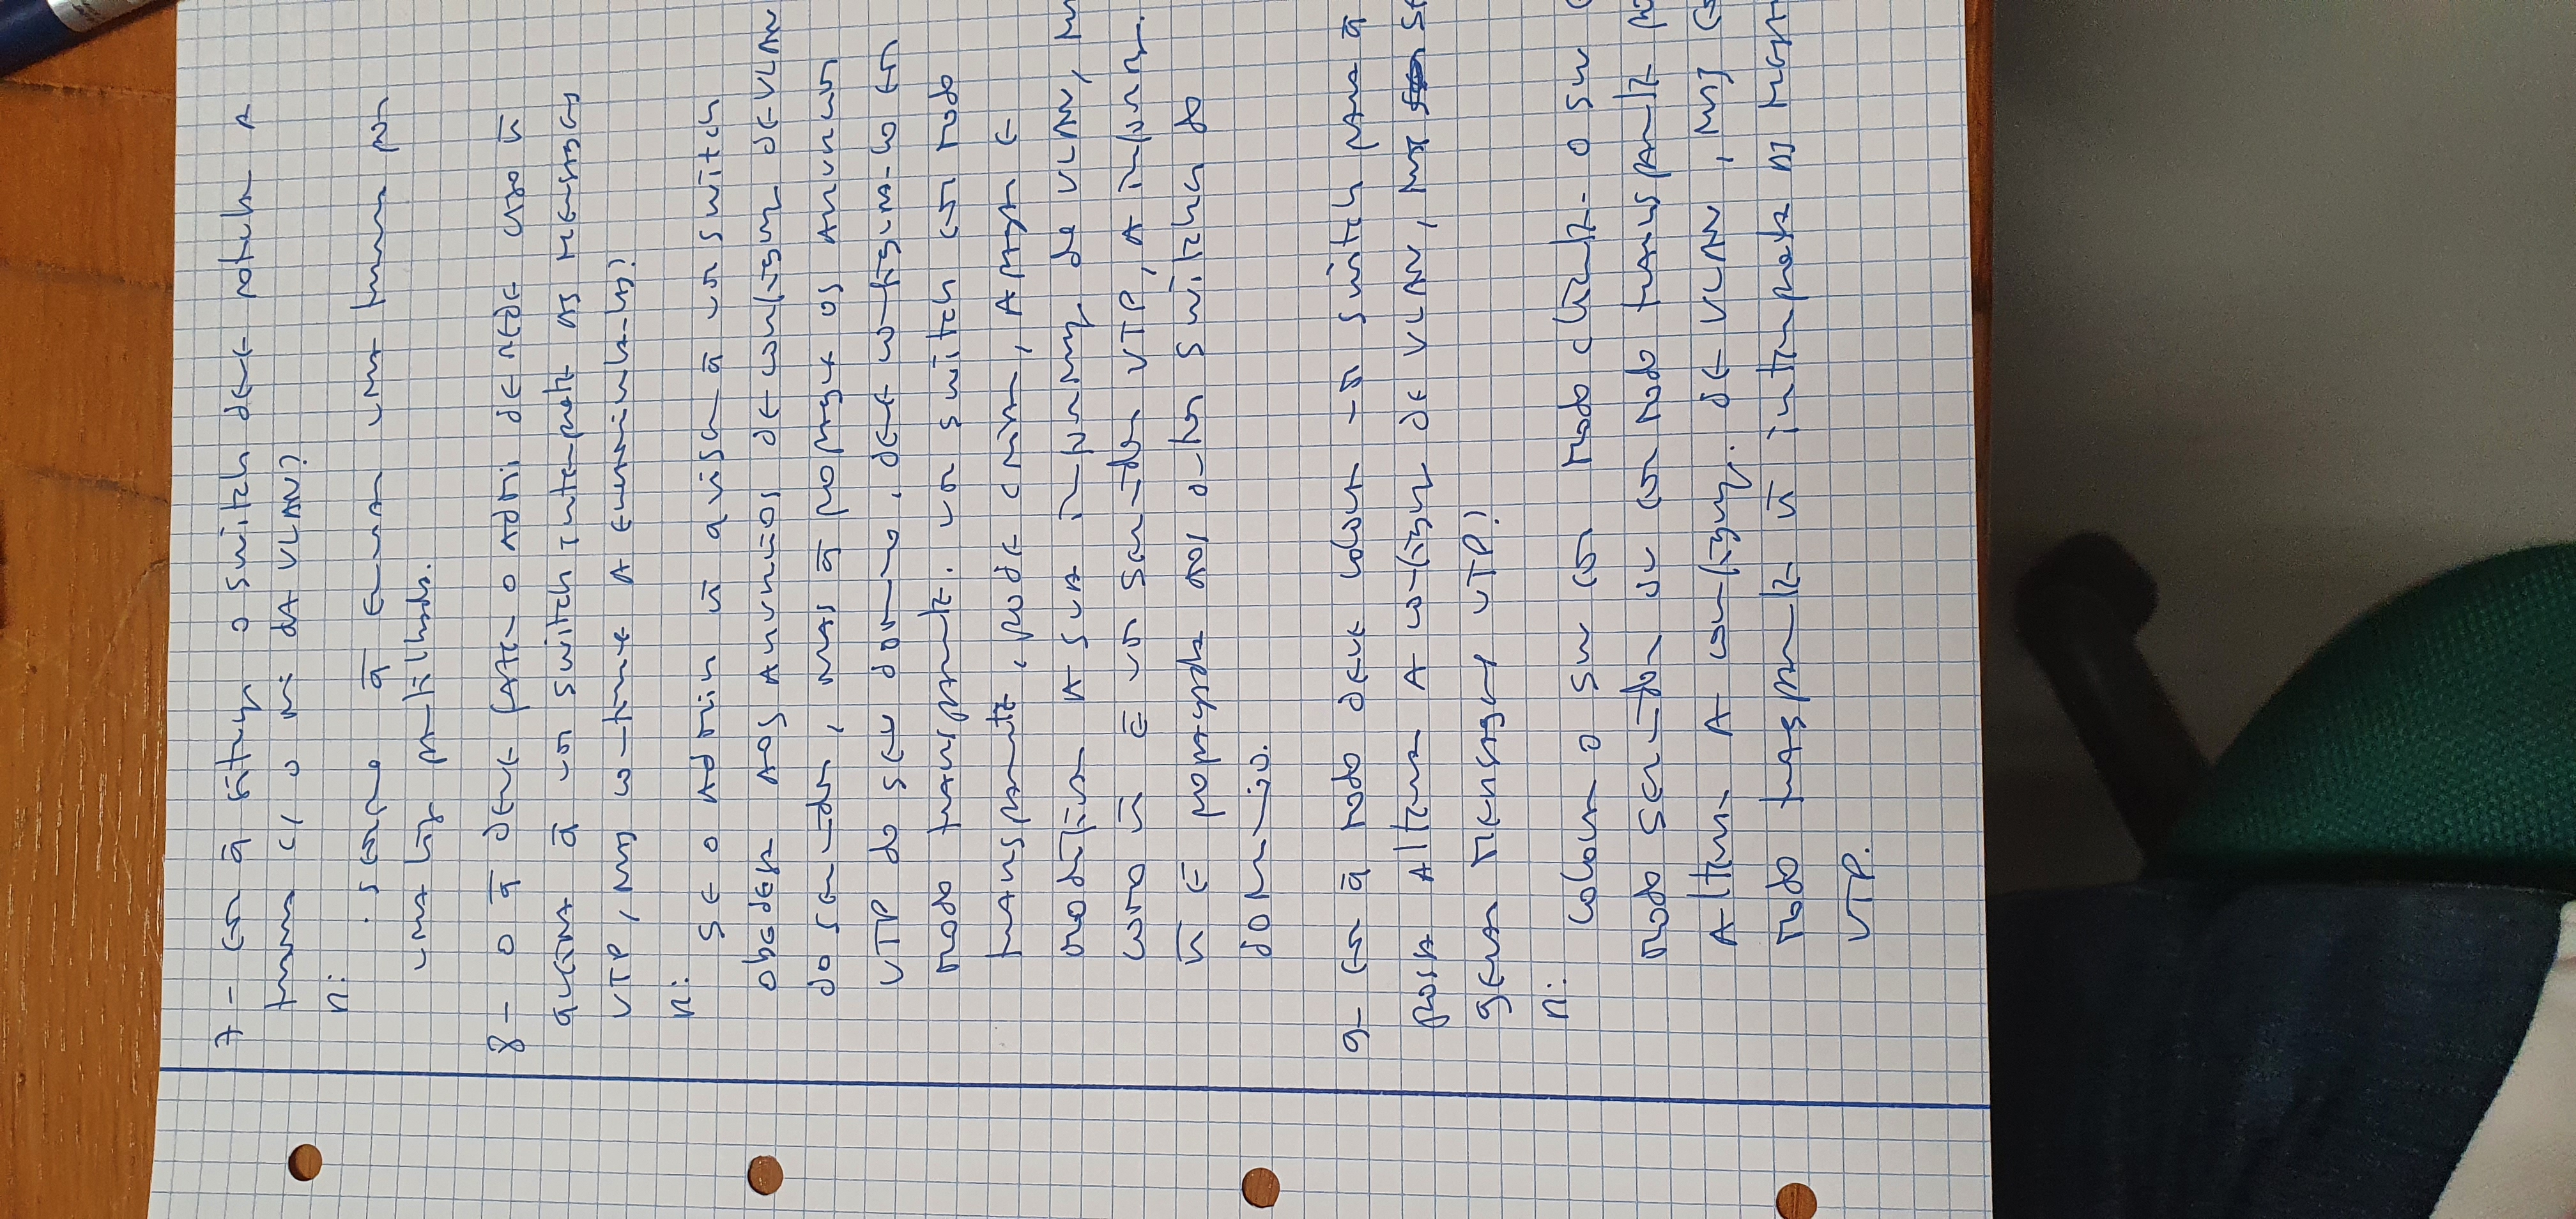 7 - Em q̄ situaç o switch deve rotular a
trama c/ o nº da VLAN?
R:
. Sempre q̄ enviar uma trama por
uma lig partilhada.
8 - O q̄ deve fazer o admi de rede caso ñ
queira q̄ um switch interprete as mensagens
VTP, mas continue a encaminhá-las?
R:
Se o admin ñ quiser q̄ um switch
obedeça aos anuncios de configuraç de VLAN
do servidor, mas q̄ propague os anuncios
VTP do seu dominio, deve configura-lo em
modo transparente. Um switch em modo
transparente, pode criar, apagar e
modificar a sua informaç de VLAN,
como ñ é um servidor VTP, a informa.
ñ é propagada aos outros switches do
dominio.
9- Em q̄ modo deve colocar um switch para q̄
possa alterar a configuraç de VLAN, mas
gerar mensagens VTP?
R:
Colocar o sw em modo cliente. O sw
modo servidor ou em modo transparente
alterar a configuraç. de VLAN, mas
modo trasparente ñ interpreta as
VTP.